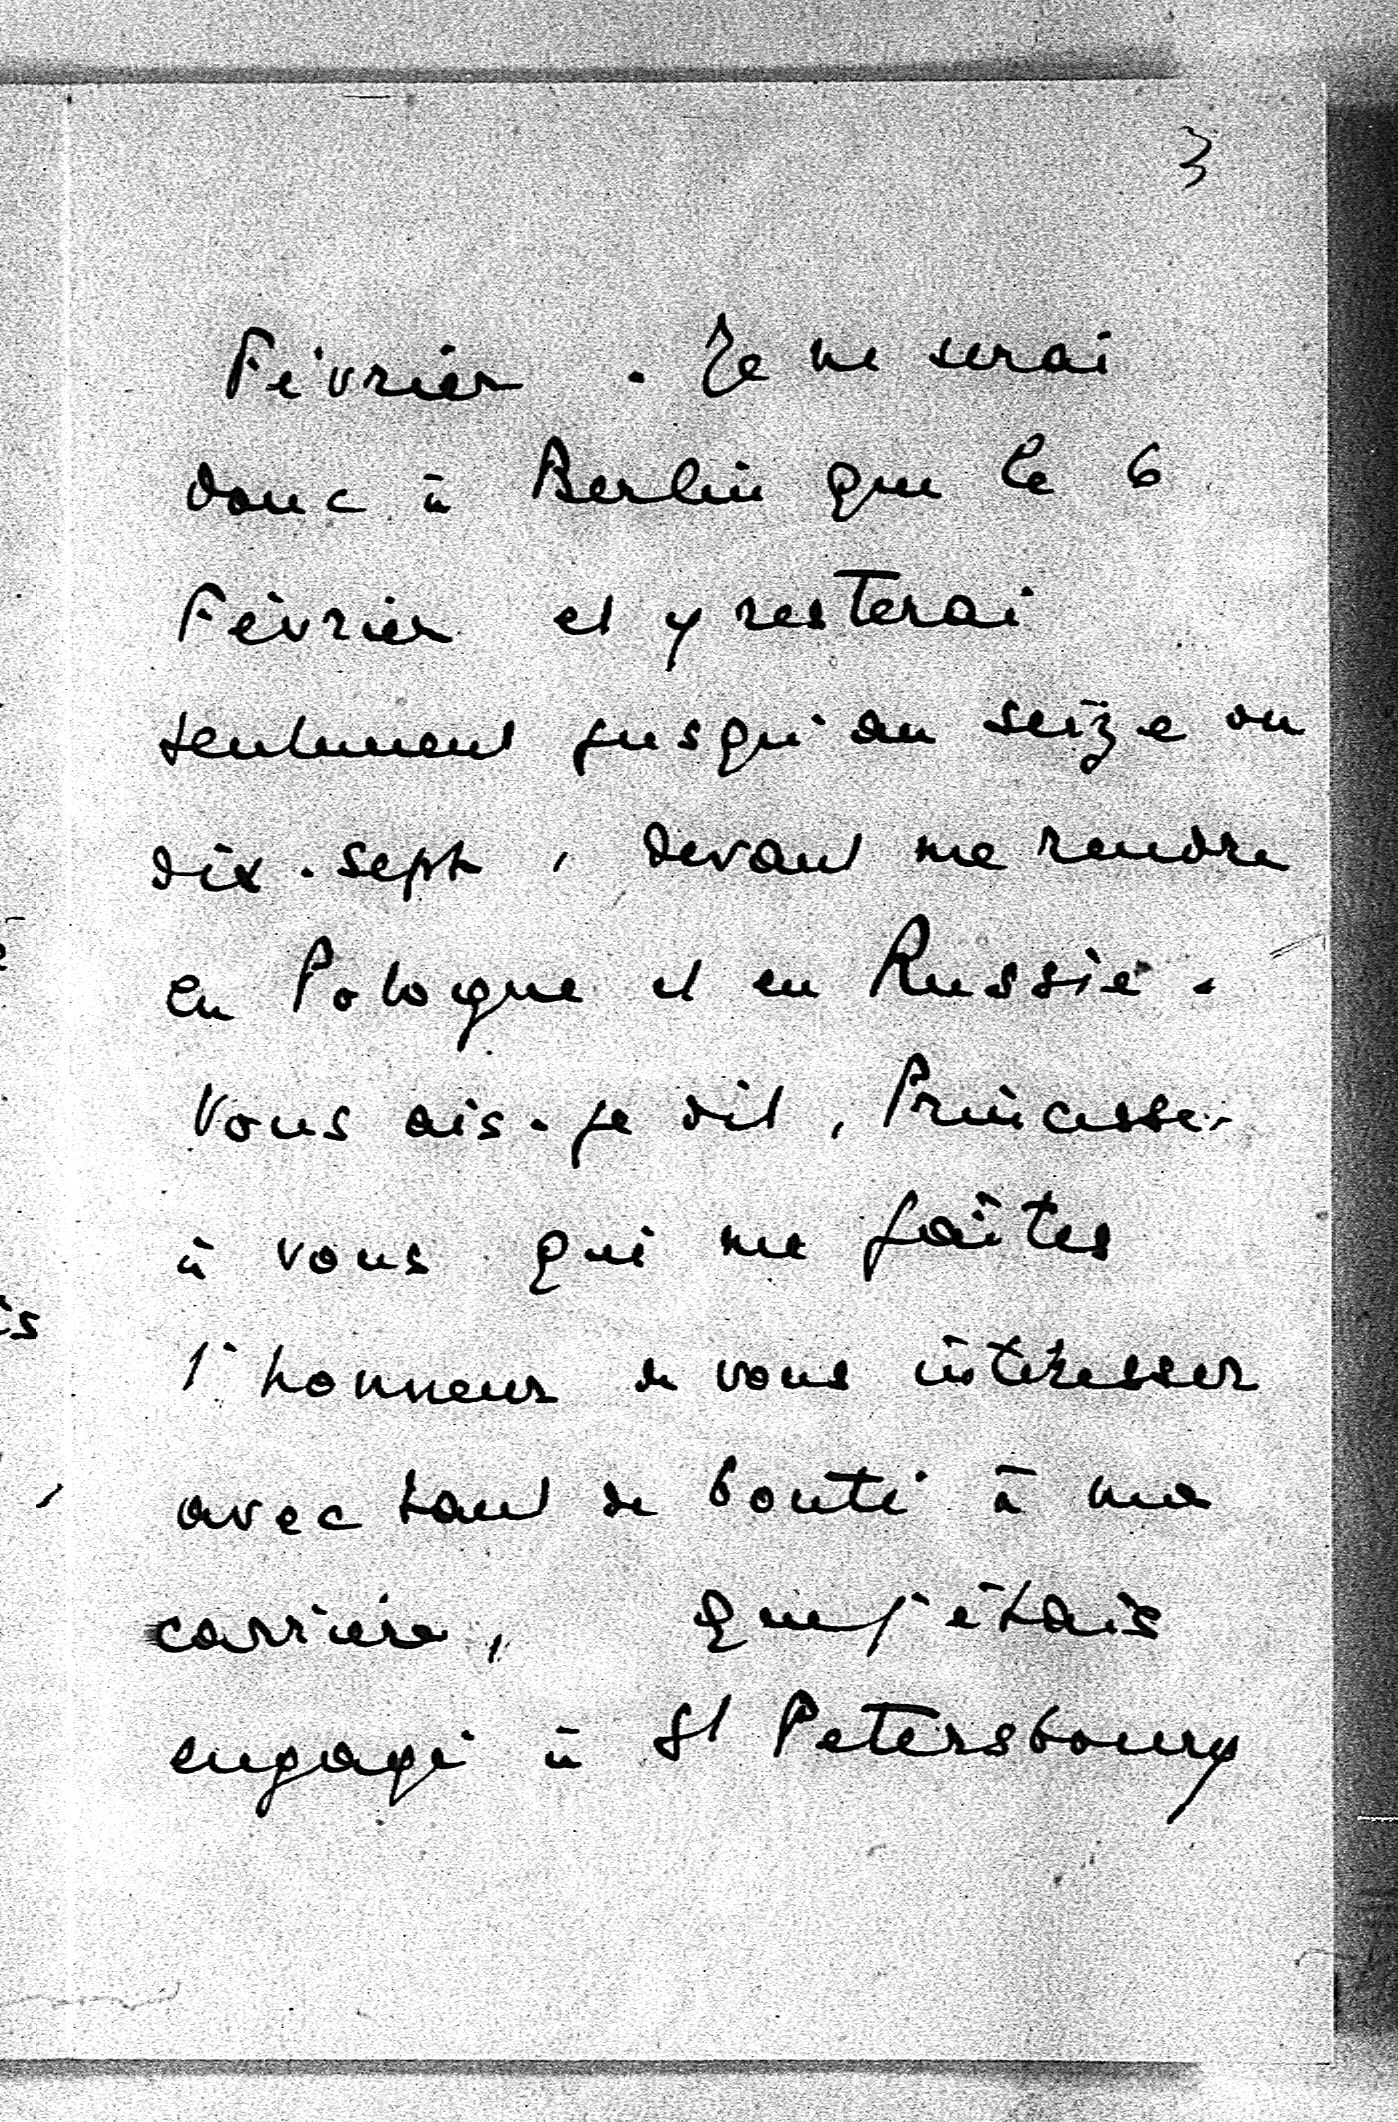 3
Février. Je ne serai
donc à Berlin que le 6
Février et y resterai
seulement jusqu'au seize ou
dix-sept, devant me rendre
en Pologne et en Russie.
Vous ais-je dit, Princesse,
à vous qui me faîtes
l'honneur de vous intéresser
avec tant de bonté à ma
carrière, que j'étais
engagé à St Petersbourg